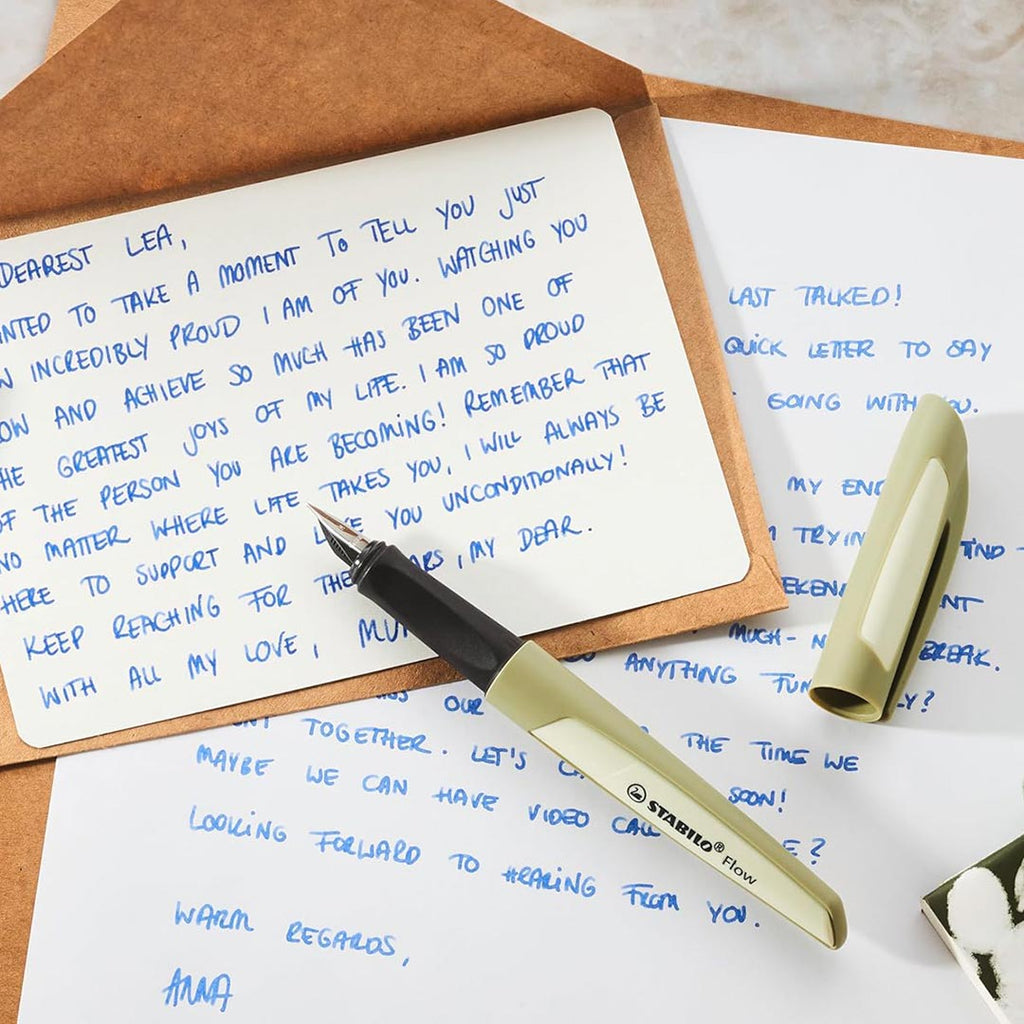 DEAREST LEA,
NTED TO TAKE A MOMENT TO TELL YOU JUST
W INCREDIBLY PROUD I AM OF YOU. WATCHING YOU
OW AND ACHIEVE SO MUCH HAS BEEN ONE OF
HE GREATEST JOYS OF MY LIFE. I AM SO PROUD
OF THE PERSON YOU ARE BECOMING! REMEMBER THAT
NO MATTER WHERE LIFE TAKES YOU, I WILL ALWAYS BE
HERE TO SUPPORT AND YOU UNCONDITIONALLY!
KEEP REACHING FOR THE , MY DEAR.
WITH ALL MY LOVE,
LAST TALKED!
QUICK LETTER TO SAY
GOING WITH
MY
TRYIN
MUCH- BREAK.
ANYTHING FUN LY?
OUR
TOGETHER. LET'S THE TIME WE
MAYBE WE CAN HAVE VIDEO CALL SOON!
LOOKING FORWARD TO HEARING FROM YOU.
WARM REGARDS,
ANNA
STABILO® Flow